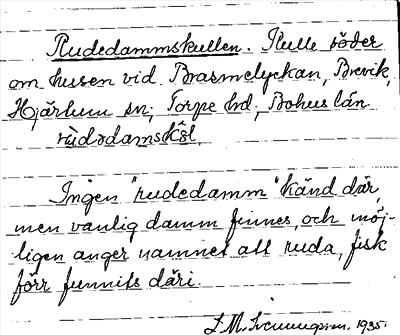 Rudedammskullen. Kulle söder
om husen vid Brasmelyckan, Brevik,
Hjärtum sn; Torpe hd; Bohus län
rùdədamskə̂l.
Ingen "rudedamm" känd där,
men vanlig damm finnes, och möj-
ligen anger namnet att ruda, fisk
förr funnits däri.
1935.